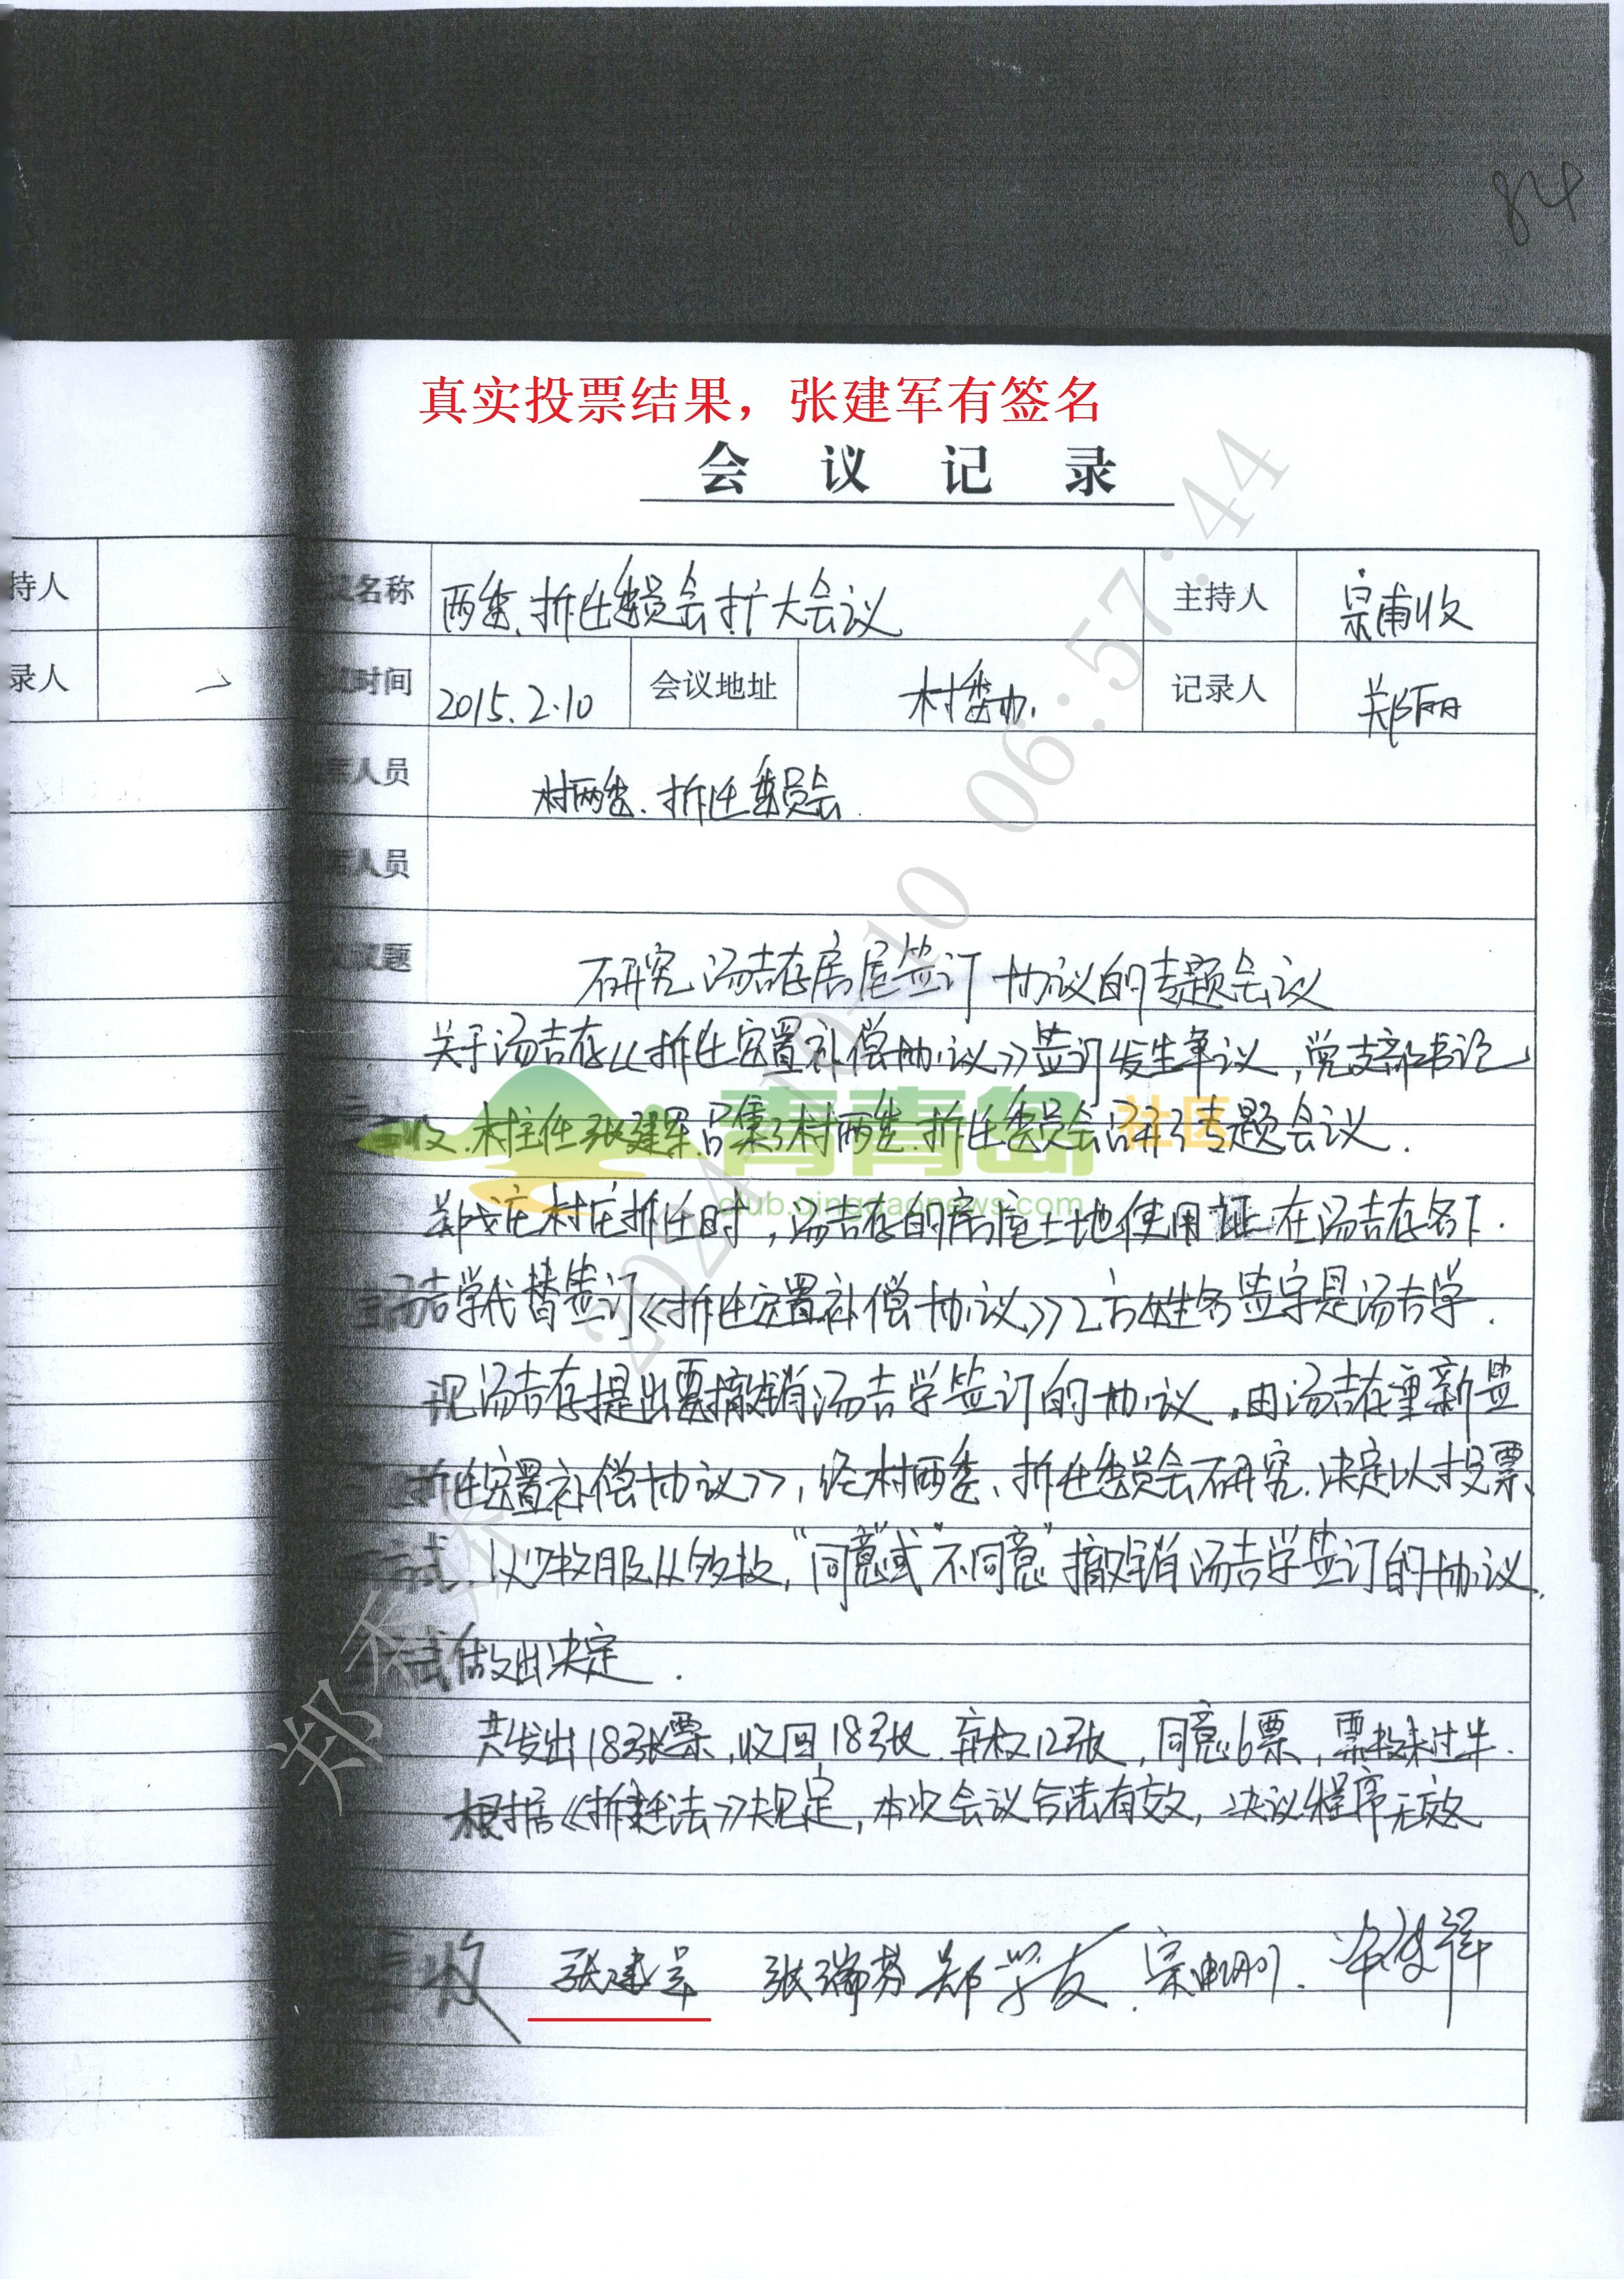 84
真实投票结果，张建军有签名
会议记录
持人 名称 两委、拆迁委员会扩大会议 主持人 宗甫收
录人 时间 2015.2.10 会议地址 村委办. 记录人 郑丽
人员 村两委、拆迁委员会
人员
议题 研究汤吉存房屋签订协议的专题会议
关于汤吉存《拆迁安置补偿协议》签订发生争议，党支部书记
收、村主任张建军召集了村两委、拆迁委员会召开了专题会议.
青青岛 社区
club.qingdaonews.com
郑戈庄村庄拆迁时，汤吉存的房屋土地使用证在汤吉存名下.
汤吉学代替签订《拆迁安置补偿协议》乙方姓名签字是汤吉学.
现汤吉存提出要撤销汤吉学签订的协议，由汤吉存重新签
拆迁安置补偿协议》，经村两委、拆迁委员会研究.决定以投票
方式，以少数服从多数，“同意”或“不同意”撤销汤吉学签订的协议.
式做出决定.
共发出18张票，收回18张.弃权12张，同意6票，票数未过半.
根据《拆迁法》规定，本次会议合法有效，决议程序无效
收 张建军 张瑞芬 郑学友
2024-10-10 06:57:44